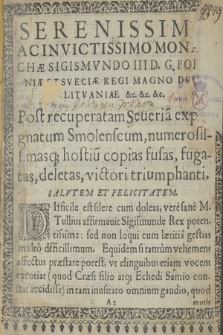 SERENISSIM
AC INVICTISSIMO MON
CHÆ SIGISMVNDO III D. G. POI
NIÆ ET SVECIÆ REGI MAGNO DV
LITVANIAE &c. &c. &c.
Post recuperatam Seueriã exp
gnatum Smolenscum, numerosis-
simasq; hostiũ copias fusas, fuga-
tas, deletas, victori triumphanti.
SALVTEM ET FELICITATEM.
DIfficile est silere cum doleas, vere sanè M.
Tullius affirmauit Sigismunde Rex poren-
tissime: sed non loqui cum lætitiâ gestus
multò difficillimum. Equidem si tantùm vehemens
affectus præstare potest, vt elinguibus etiam vocem
excutiat (quod Cræsi filio atq; Echedi Samio con-
stat accidisse) in tam inusitato omnium gaudio, quod
A 2